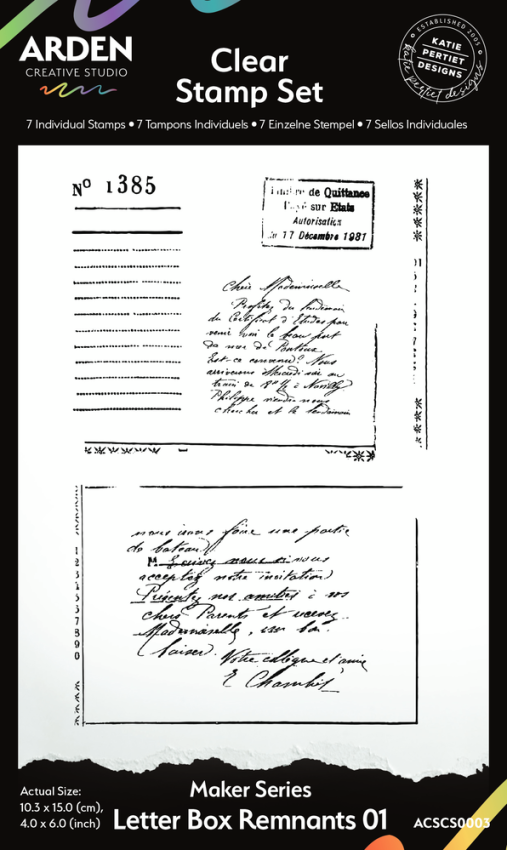 ARDEN
CREATIVE STUDIO
Clear
Stamp Set
ESTABLISHED 2005
KATIE
PERTIET
DESIGNS
katie pertiet designs
7 Individual Stamps • 7 Tampons Individuels • 7 Einzelne Stempel • 7 Sellos Individuales
Nº 1385
de Quittance
sur Etats
Autorisation
17 Décembre 1931
Chère Mademoiselle
Profitez du lendemain
du Certificat d'Etudes pour
venir voir le beau port
du
Est-ce convenu? Nous
arriverons Mercredi soir au
train de 8h ½ à
Philippe viendra nous
chercher et le lendemain
nous irons faire une partie
de bateau
nous si nous
acceptez notre invitation
Présentez nos amitiés à vos
chers Parents et recevez
Mademoiselle, un bon
baiser.
Votre obligée et amie
E
Actual Size:
10.3 x 15.0 (cm),
4.0 x 6.0 (inch)
Maker Series
Letter Box Remnants 01
ACSCS0003